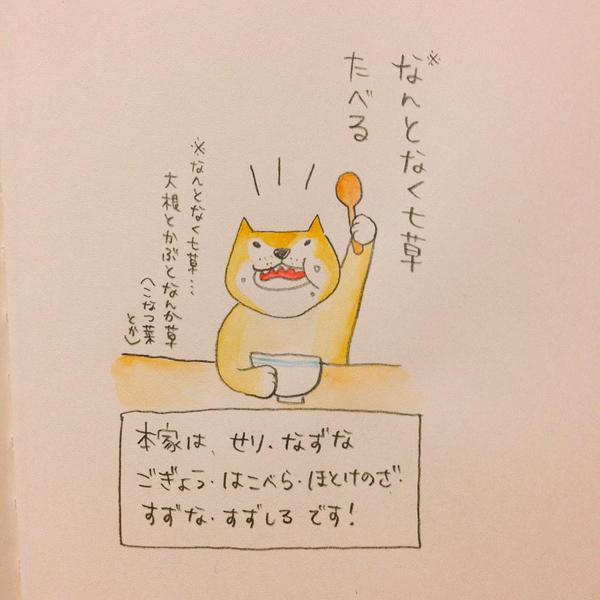 ※なんとなく七草
たべる
※なんとなく七草…
大根とかぶとなんか草
(こなつ葉
とか)
本家は、せり・なずな
ごぎょう・はこべら・ほとけのざ・
すずな・すずしろ です!